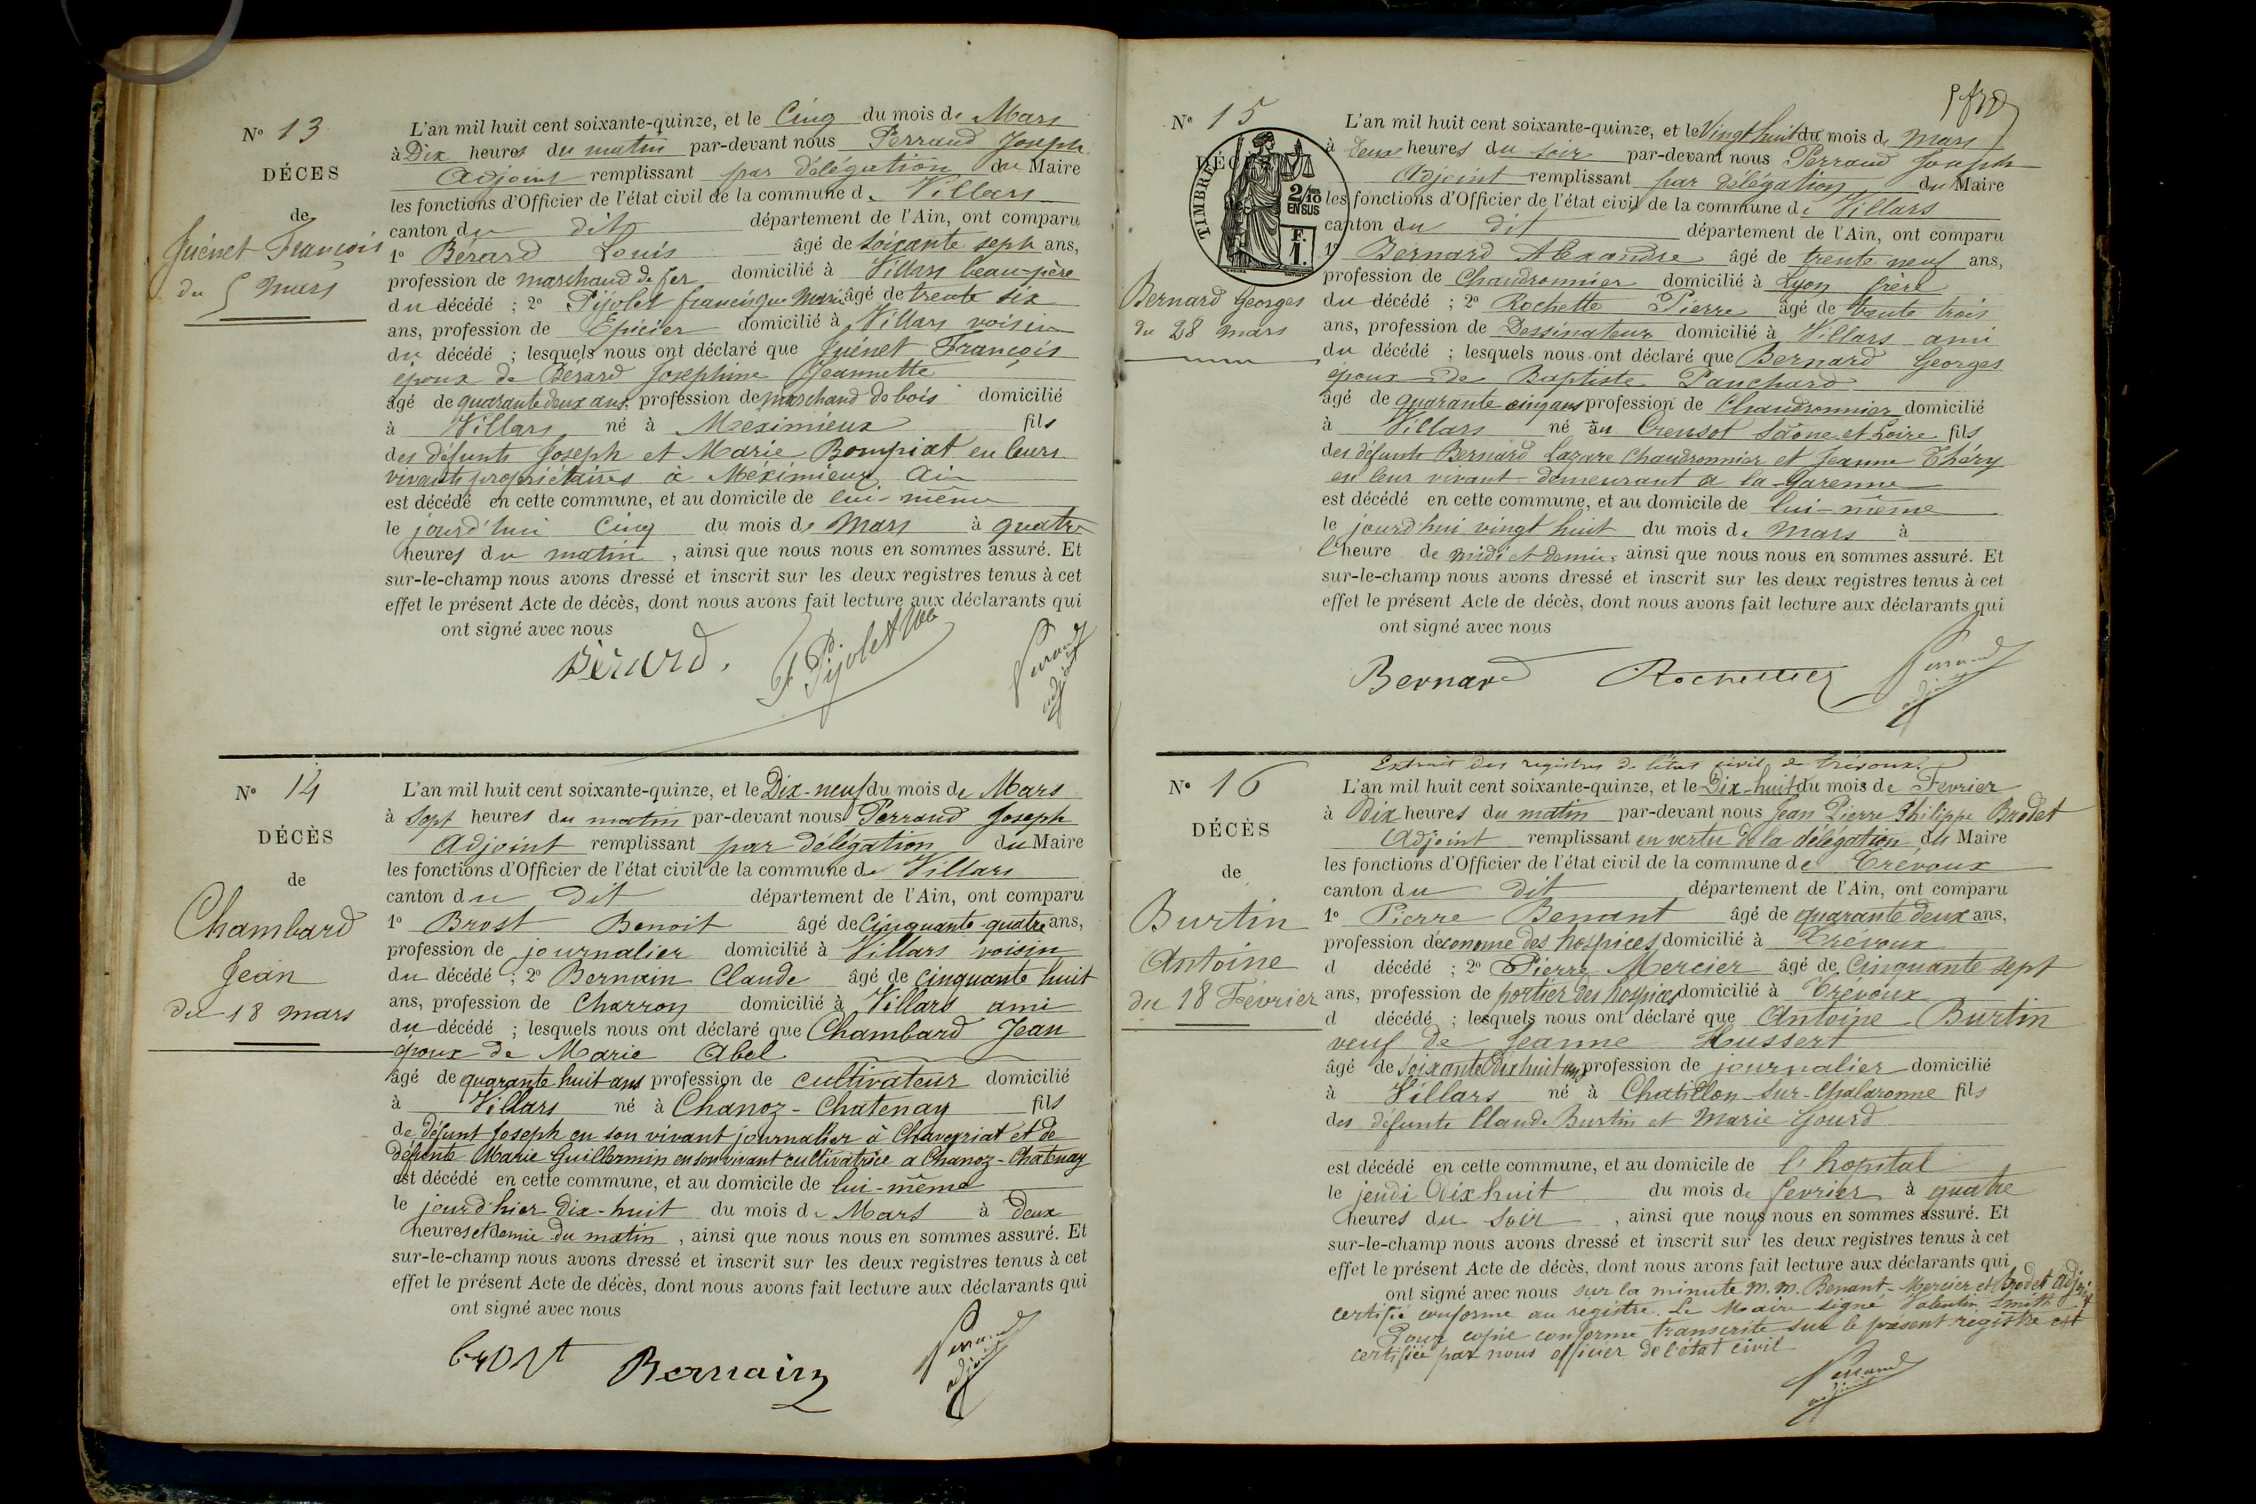 N° 13
DÉCES
de
Guénet François
du 5 mars
L'an mil huit cent soixante-quinze, et le Cinq du mois de Mars
à Dix heures du matin par-devant nous Perraud Joseph
Adjoint remplissant par délégation du Maire
les fonctions d'Officier de l'état civil de la commune de Villars
canton du dit département de l'Ain, ont comparu
1° Bérard Louis âgé de soixante sept ans,
profession de marchand de fer domicilié à Villars beau-père
du décédé ; 2° Pijolet francisque Marie âgé de trente six
ans, profession de Epicier domicilié à Villars voisin
du décédé ; lesquels nous ont déclaré que Guénet François
époux de Bérard Joséphine Jeannette
âgé de quarante deux ans, profession de marchand de bois domicilié
à Villars né à Meximieux fils
des défunts Joseph et Marie Bompiat en leurs
vivants propriétaires à Méximieux Ain
est décédé en cette commune, et au domicile de lui-même
le jourd'hui Cinq du mois de Mars à quatre
heures du matin, ainsi que nous nous en sommes assuré. Et
sur-le-champ nous avons dressé et inscrit sur les deux registres tenus à cet
effet le présent Acte de décès, dont nous avons fait lecture aux déclarants qui
ont signé avec nous
Bérard. F Pijolet Perraud adjoint
N° 14
DÉCÈS
de
Chambard
Jean
du 18 mars
L'an mil huit cent soixante-quinze, et le Dix-neuf du mois de Mars
à Sept heures du matin par-devant nous Perraud Joseph
Adjoint remplissant par délégation du Maire
les fonctions d'Officier de l'état civil de la commune de Villars
canton du Dit département de l'Ain, ont comparu
1° Brost Benoit âgé de Cinquante-quatre ans,
profession de journalier domicilié à Villars voisin
du décédé ; 2° Bernain Claude âgé de cinquante huit
ans, profession de Charron domicilié à Villars ami
du décédé ; lesquels nous ont déclaré que Chambard Jean
époux de Marie Abel
âgé de quarante huit ans profession de cultivateur domicilié
à Villars né à Chanoz-Chatenay fils
de défunt Joseph en son vivant journalier à Chaveyriat et de
défunte Marie Guillermin en son vivant cultivatrice a Chanoz-Chatenay
est décédé en cette commune, et au domicile de lui-même
le jourd'hier dix-huit du mois de Mars à Deux
heures et demie du matin, ainsi que nous nous en sommes assuré. Et
sur-le-champ nous avons dressé et inscrit sur les deux registres tenus à cet
effet le présent Acte de décès, dont nous avons fait lecture aux déclarants qui
ont signé avec nous
brost Bernain Perraud adjoint
N° 15
DÉC
TIMBRE
2/10
EN SUS
F.
1.
Bernard Georges
du 28 mars
L'an mil huit cent soixante-quinze, et le Vingt huit du mois de mars
à deux heures du soir par-devant nous Perraud Joseph
Adjoint remplissant par délégation du Maire
les fonctions d'Officier de l'état civil de la commune de Villars
canton du dit département de l'Ain, ont comparu
1° Bernard Alexandre âgé de trente neuf ans,
profession de Chaudronnier domicilié à Lyon frère
du décédé ; 2° Rochette Pierre âgé de trente trois
ans, profession de Dessinateur domicilié à Villars ami
du décédé ; lesquels nous ont déclaré que Bernard Georges
époux de Baptiste Panchard
âgé de quarante cinq ans profession de Chaudronnier domicilié
à Villars né au Creusot Saône et Loire fils
des défunts Bernard Lazare Chaudronnier et Jeanne Théry
en leur vivant demeurant a la Garenne
est décédé en cette commune, et au domicile de lui-même
le jourd'hui vingt huit du mois de mars à
l'heure de midi et demie, ainsi que nous nous en sommes assuré. Et
sur-le-champ nous avons dressé et inscrit sur les deux registres tenus à cet
effet le présent Acte de décès, dont nous avons fait lecture aux déclarants qui
ont signé avec nous
Bernard Perraud adjoint
Extrait des registres de l'état civil de trévoux.
N° 16
DÉCÈS
de
Burtin
Antoine
du 18 Février
L'an mil huit cent soixante-quinze, et le Dix-huit du mois de Fevrier
à Dix heures du matin par-devant nous Jean Pierre Philippe Brodet
Adjoint remplissant en vertu de la délégation du Maire
les fonctions d'Officier de l'état civil de la commune de Trévoux
canton du dit département de l'Ain, ont comparu
1° Pierre Benant âgé de quarante deux ans,
profession d'économe des hospices domicilié à Trévoux
d décédé ; 2° Pierre Mercier âgé de cinquante sept
ans, profession de portier des hospices domicilié à Trévoux
d décédé ; lesquels nous ont déclaré que Antoine Burtin
veuf de Jeanne Hussert
âgé de soixante Dix huit ans profession de journalier domicilié
à Villars né à Chatillon-sur-Chalaronne fils
des défunts Claude Burtin et Marie Gourd
est décédé en cette commune, et au domicile de l'hopital
le jeudi dix huit du mois de fevrier à quatre
heures du soir, ainsi que nous nous en sommes assuré. Et
sur-le-champ nous avons dressé et inscrit sur les deux registres tenus à cet
effet le présent Acte de décès, dont nous avons fait lecture aux déclarants qui
ont signé avec nous sur la minute M.M. Benant Mercier et Brodet adjoint
certifié conforme au registre. Le Maire signé Valentin Smith
Pour copie conforme transcrite sur le présent registre est
certifiée par nous officier de l'état civil
Perraud adjoint